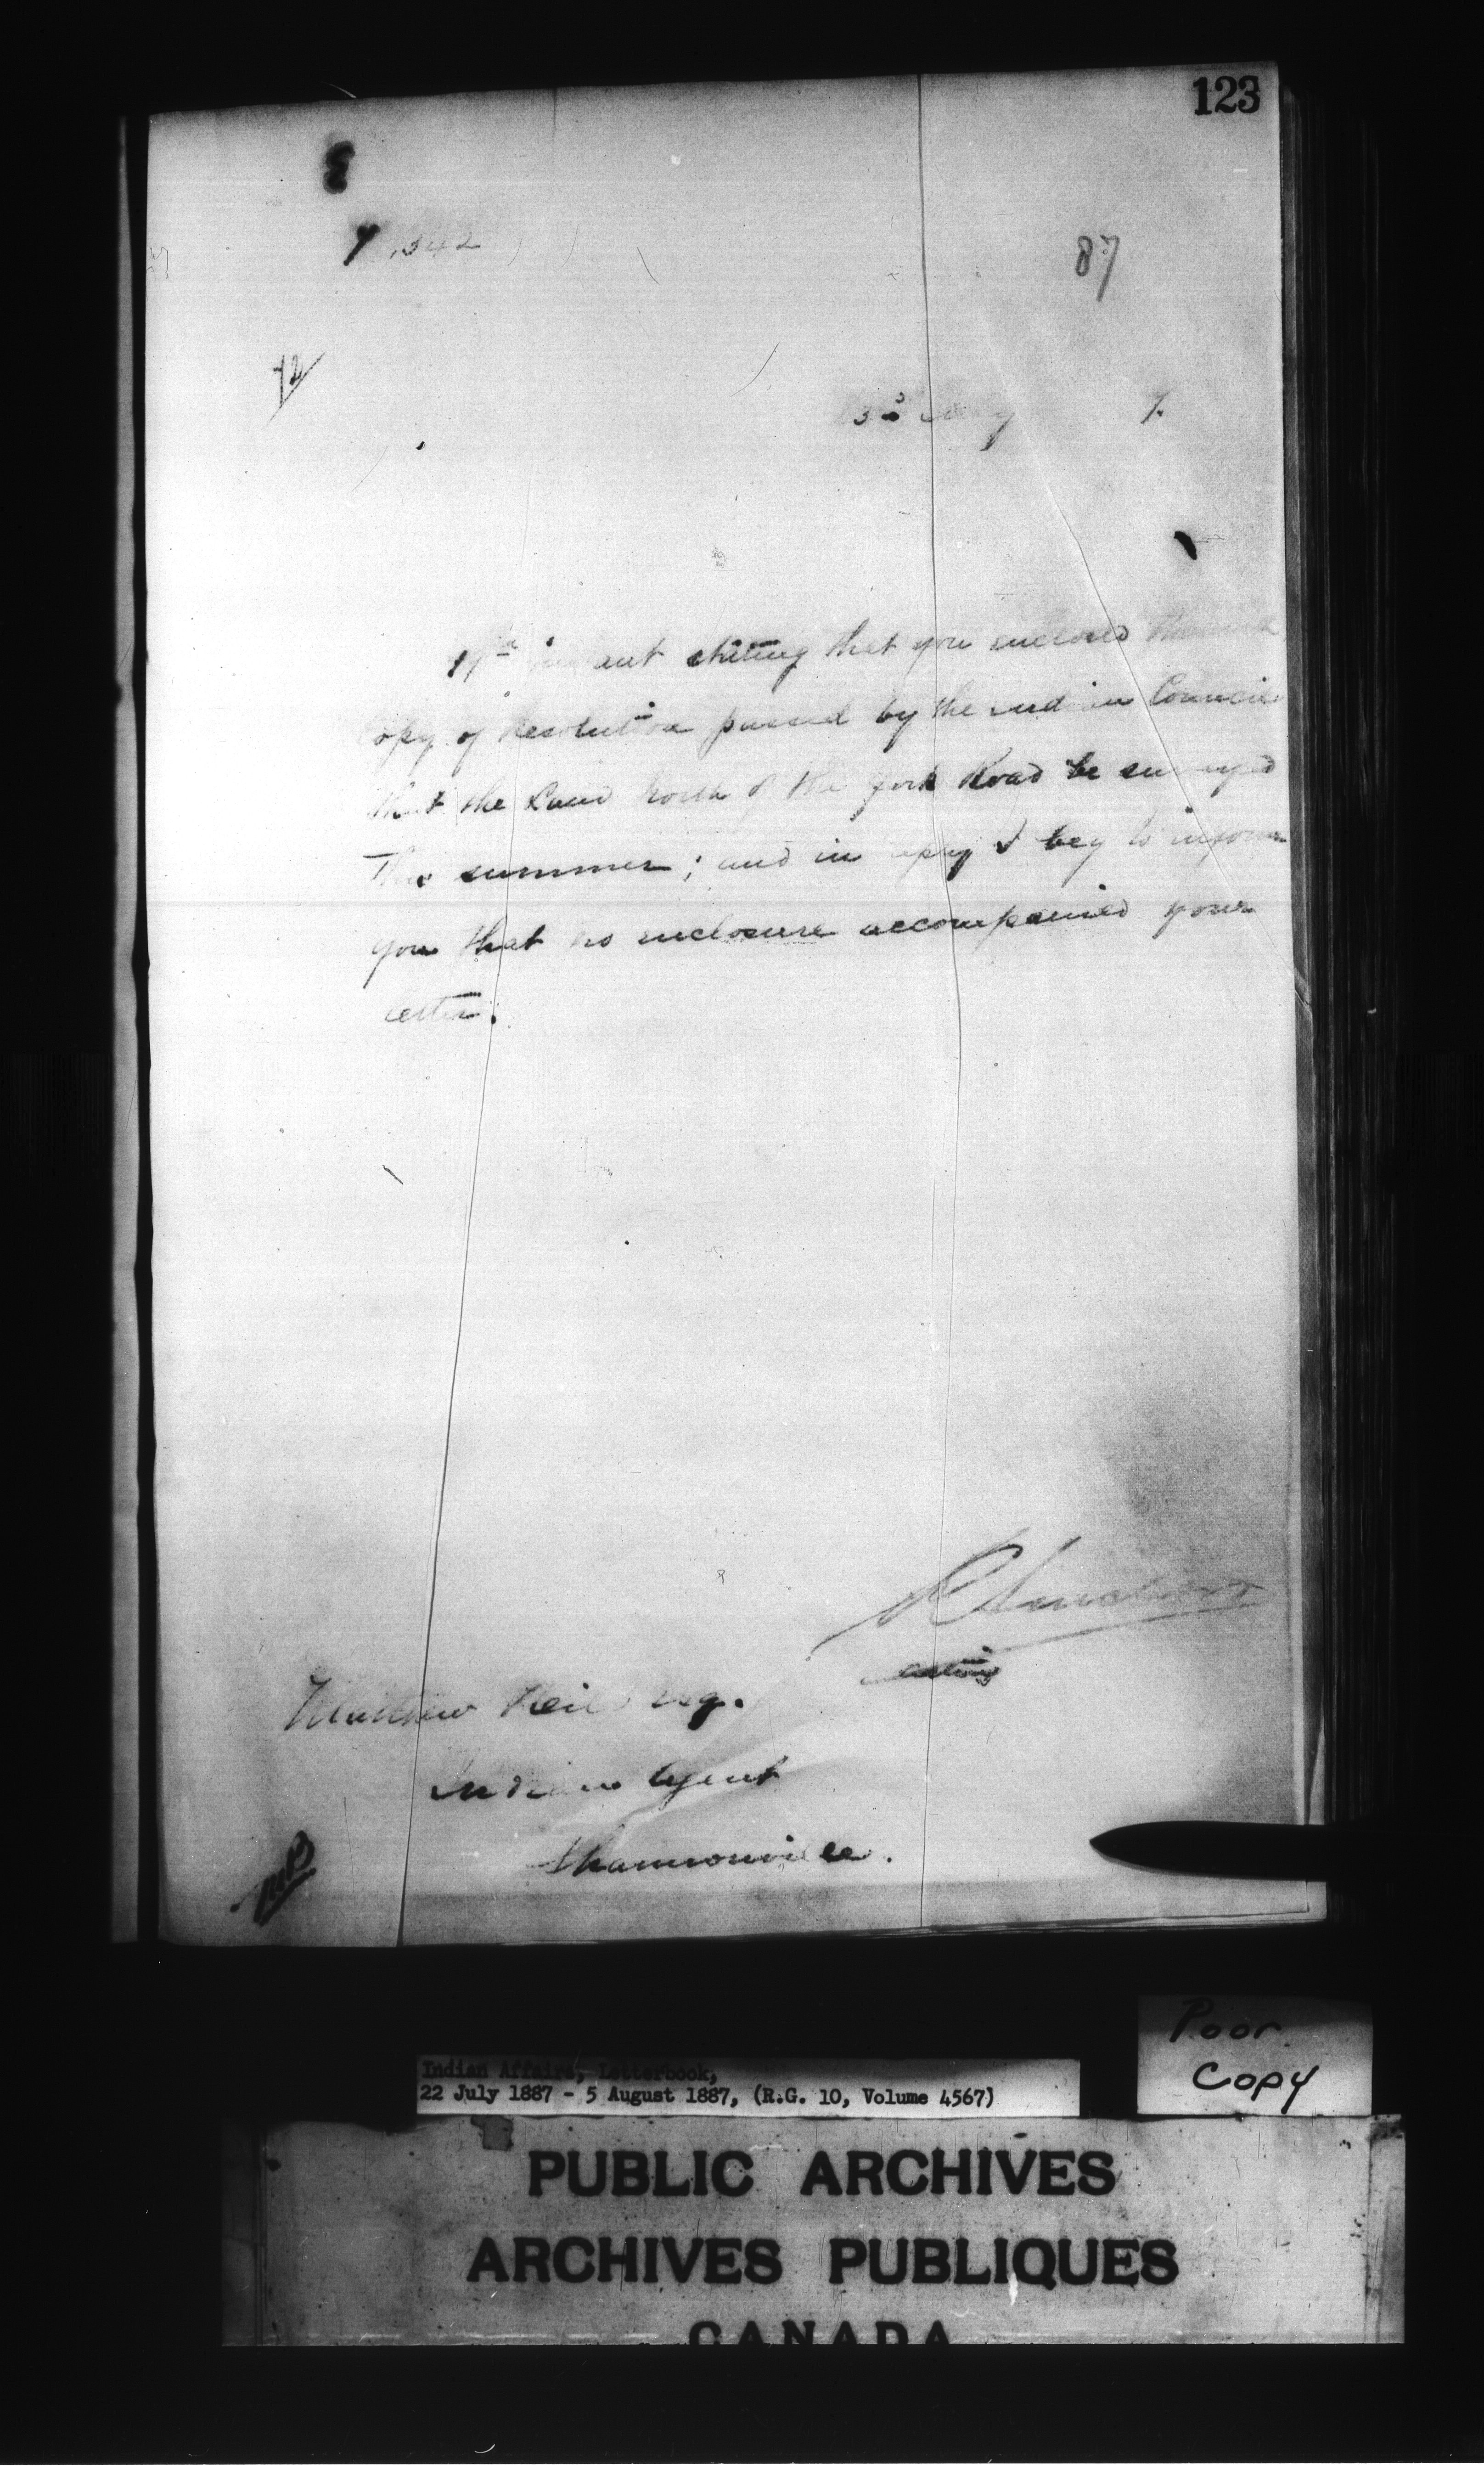 123
87
72
19th instant stating that you enclosed
Copy of Resolution passed by the Indian Council
that the Land north of the York Road be surveyed
This summer; and in reply I beg to inform
you that no enclosure accompanied your
letter.
acting
Matthew Hill Esq.
Indian Agent
Shannonville.
Poor
Copy
Indian Affairs, Letterbook,
22 July 1887 - 5 August 1887, (R.G. 10, Volume 4567)
PUBLIC ARCHIVES
ARCHIVES PUBLIQUES
CANADA